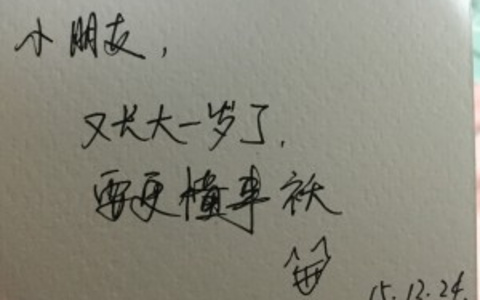 小朋友，
又长大一岁了，
要更懂事
15.12.24.